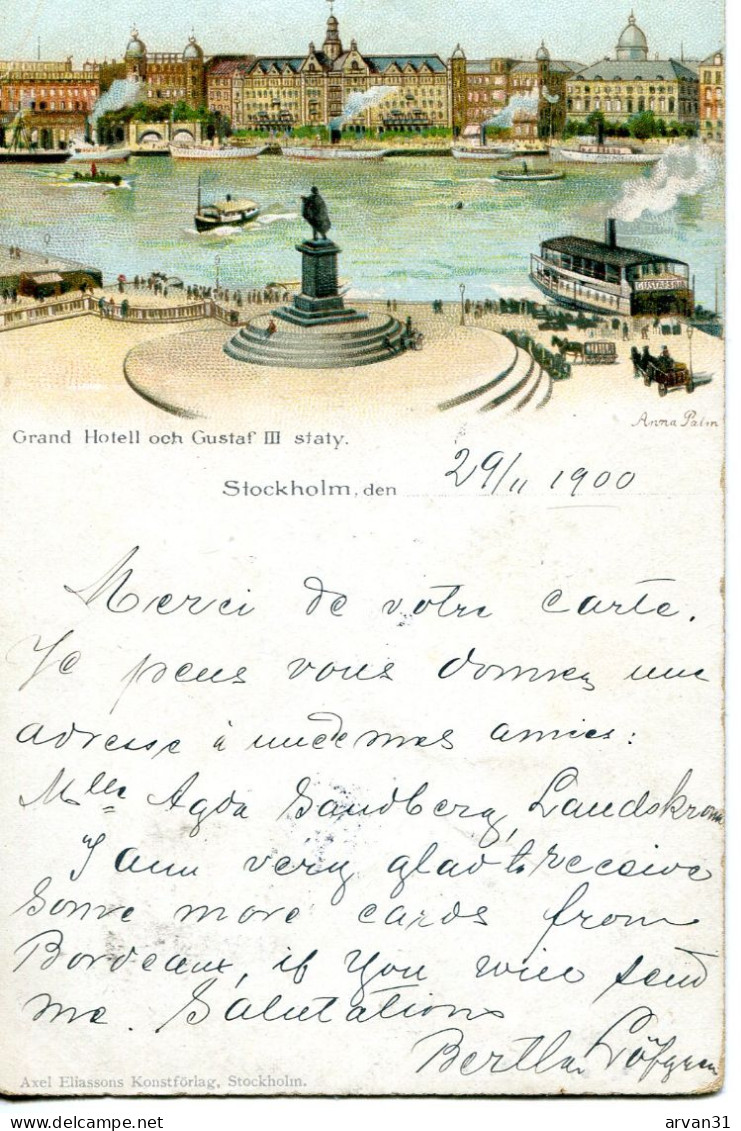 GUSTAFSBERG
Anna Palm
Grand Hotell och Gustaf III staty.
Stockholm, den 29/11 1900
Merci de votre carte.
Je peus vous donnez une
adresse à une de mes amies:
Mlle Agda Sandberg, Landskrona
I am very glad to receive
some more cards from
Bordeaux, if You will send
me. Salutations
Bertha Löfgren
Axel Eliassons Konstförlag, Stockholm.
arvan31